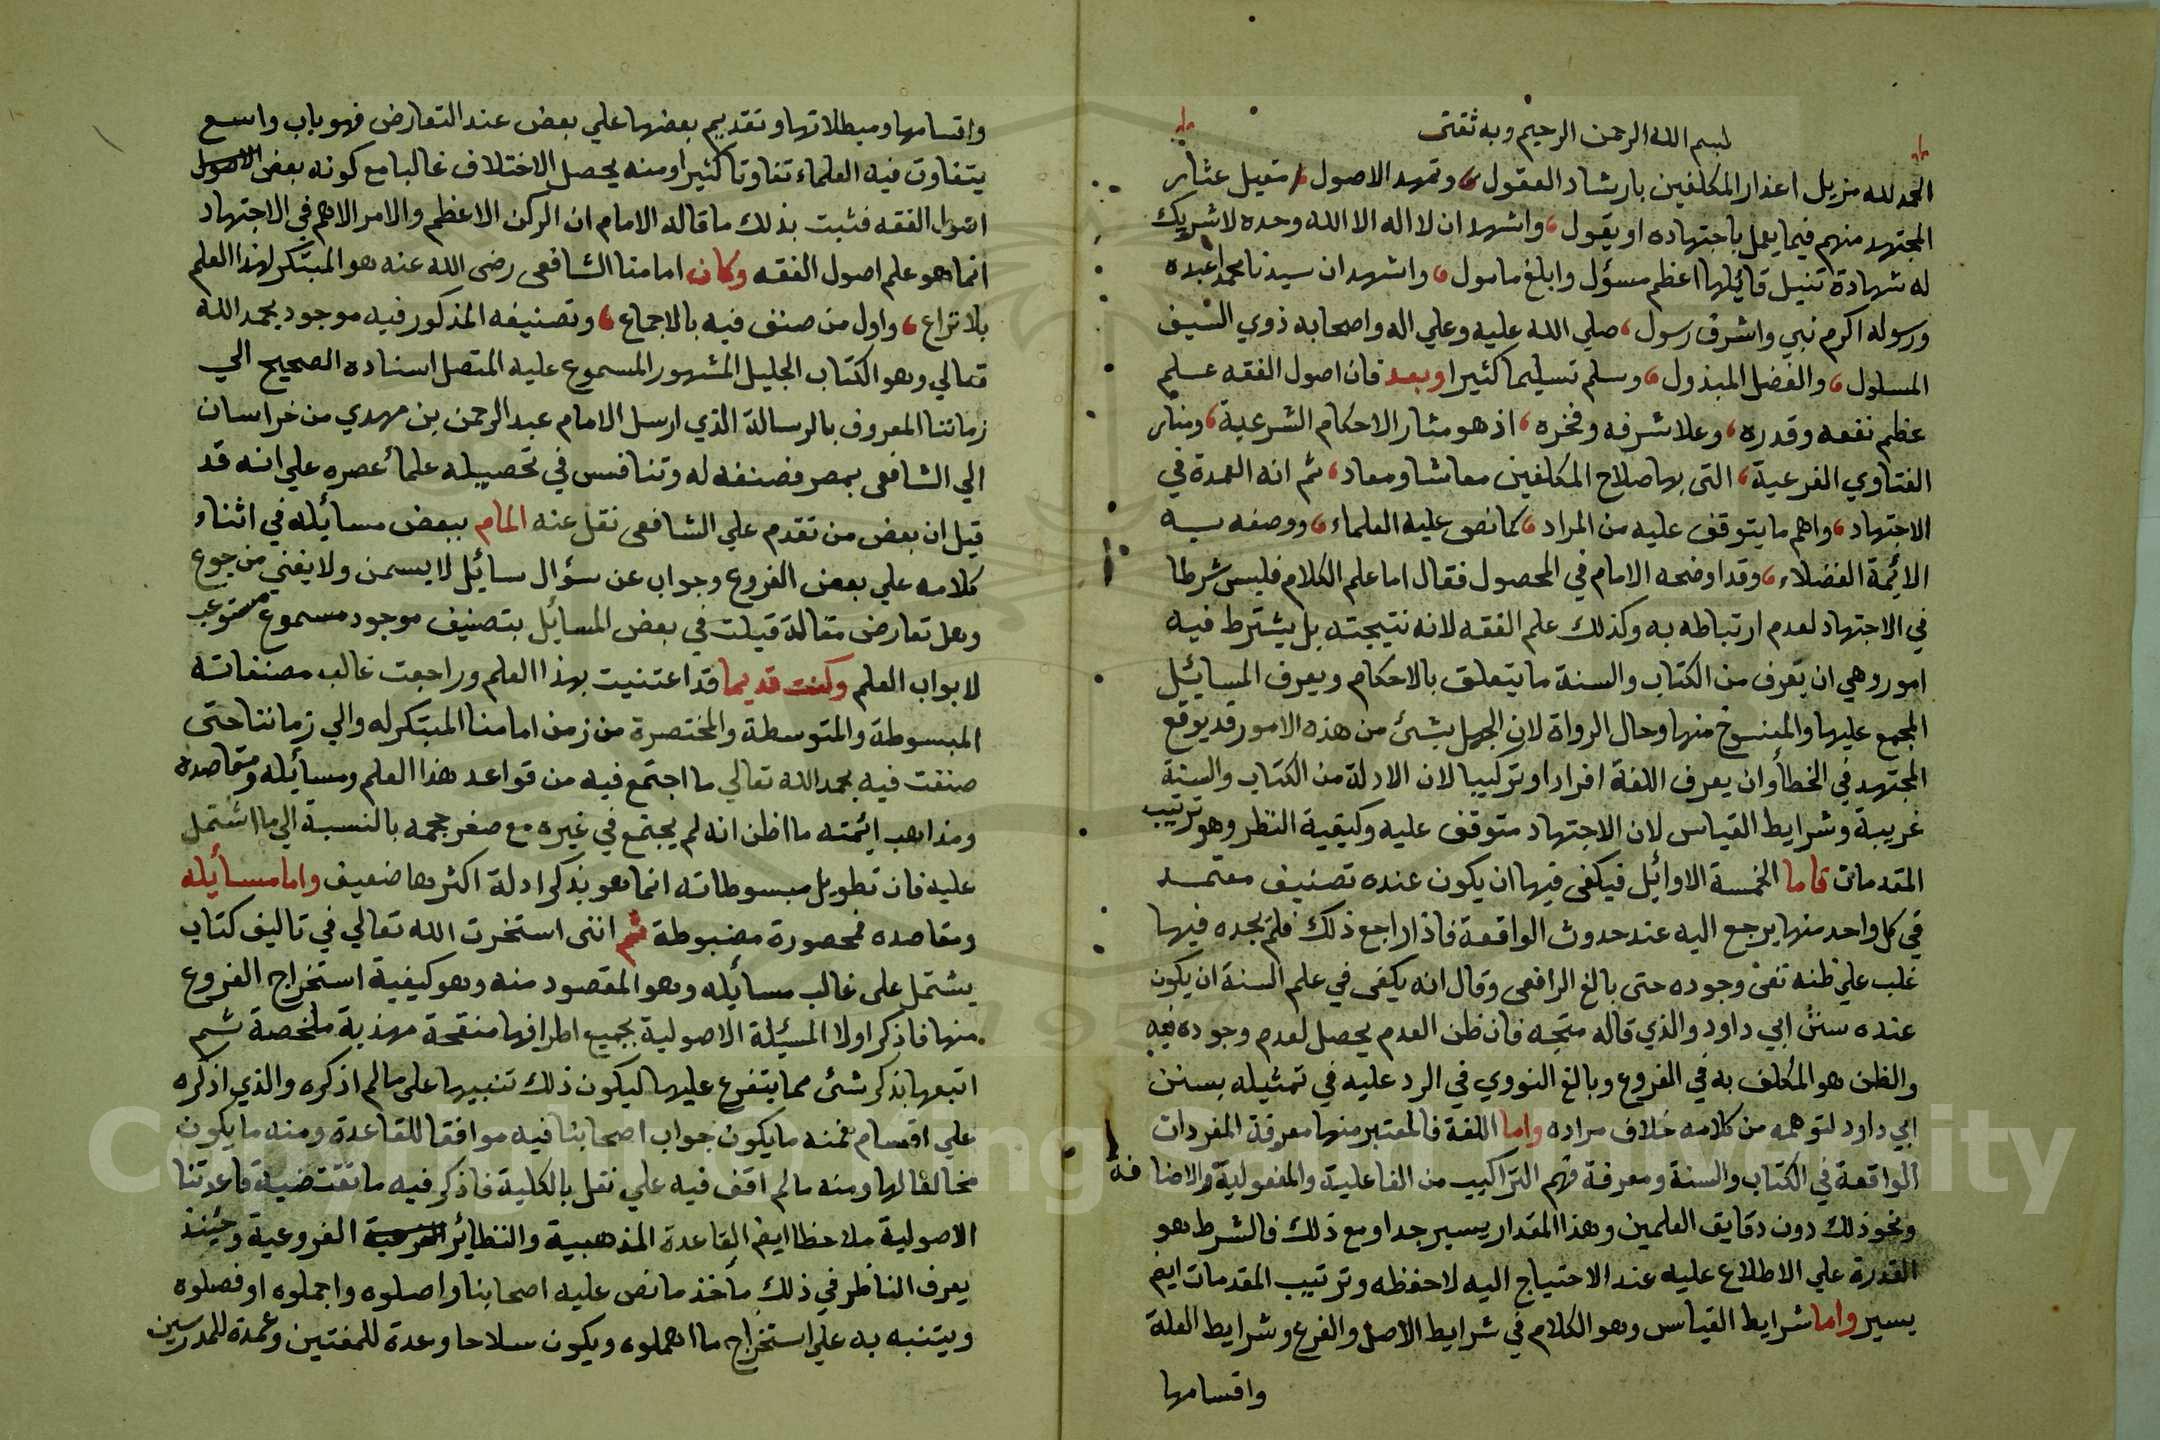 بسم الله الرحمن الرحيم وبه ثقتى
الحمد لله مزيل اعذار المكلفين بارشاد العقول، وتمهد الاصول، مقيل عثار
المجتهد منهم فيما يعمل باجتهاده او يقول، واشهد ان لا اله الا الله وحده لا شريك
له شهادة تنيل قائلها اعظم مسؤل وابلغ مامول، واشهد ان سيدنا محمدا عبده
ورسوله اكرم نبي واشرف رسول، صلي الله عليه وعلي اله واصحابه ذوي السيف
المسلول، والفضل المبذول، وسلم تسليما كثيرا وبعد فان اصول الفقه علم
عظم نفعه وقدره، وعلا شرفه وفخره، اذ هو مثار الاحكام الشرعية، ومنار
الفتاوي الفرعية، التى بها صلاح المكلفين معاشا ومعاد، ثم انه العمدة في
الاجتهاد، واهم ما يتوقف عليه من المراد، كما نص عليه العلماء، ووصفه به
الائمة الفضلاء، وقد اوضحه الامام في المحصول فقال اما علم الكلام فليس شرطا
في الاجتهاد لعدم ارتباطه به وكذلك علم الفقه لانه نتيجته بل يشترط فيه
امور وهي ان يعرف من الكتاب والسنة ما يتعلق بالاحكام ويعرف المسائل
المجمع عليها والمنسوخ منها وحال الرواة لان الجهل بشئ من هذه الامور قد يوقع
المجتهد في الخطأ وان يعرف اللغة افرادا وتركيبا لان الادلة من الكتاب والسنة
غريبة وشرايط القياس لان الاجتهاد متوقف عليه وكيفية النظر وهو ترتيب
المقدمات فاما الخمسة الاوائل فيكفى فيها ان يكون عنده تصنيف معتمد
في كل واحد منها يرجع اليه عند حدوث الواقعة فاذا راجع ذلك فلم يجده فيها
غلب علي ظنه نفى وجوده حتى بالغ الرافعى وقال انه يكفى في علم السنة ان يكون
عنده سنن ابي داود والذي قاله متجه فان ظن العدم يحصل لعدم وجوده فيه
والظن هو المكلف به في الفروع وبالغ النووي في الرد عليه في تمثيله بسنن
ابي داود لتوهمه من كلامه خلاف مراده واما اللغة فالمعتبر منها معرفة المفردات
الواقعة في الكتاب والسنة ومعرفة فهم التراكيب من الفاعلية والمفعولية والاضافة
ونحو ذلك دون دقايق العلمين وهذا المقدار يسير جدا ومع ذلك فالشرط هو
القدرة علي الاطلاع عليه عند الاحتياج اليه لا حفظه وترتيب المقدمات ايم
يسير واما شرايط القياس وهو الكلام في شرايط الاصل والفرع وشرايط العلة
واقسامها
واقسامها ومبطلاتها وتقديم بعضها علي بعض عند التعارض فهو باب واسع
يتفاوت فيه العلماء تفاوتا كثيرا ومنه يحصل الاختلاف غالبا مع كونه بعض
اصول الفقه فثبت بذلك ما قاله الامام ان الركن الاعظم والامر الاهم في الاجتهاد
انما هو علم اصول الفقه وكان امامنا الشافعى رضى الله عنه هو المبتكر لهذا العلم
بلا نزاع، واول من صنف فيه بالاجماع، وتصنيفه المذكور فيه موجود بحمد الله
تعالي وهو الكتاب الجليل المشهور المسموع عليه المتصل اسناده الصحيح الي
زماننا المعروف بالرسالة الذي ارسل الامام عبد الرحمن بن مهدي من خراسان
الي الشافعى بمصر فصنفه له وتنافس في تحصيله علماء عصره علي انه قد
قيل ان بعض من تقدم علي الشافعى نقل عنه المام ببعض مسائله في اثناء
كلامه علي بعض الفروع وجواب عن سؤال سائل لا يسمن ولا يغني من جوع
وهل تعارض مقالة قيلت في بعض المسائل بتصنيف موجود مسموع مستوعب
لابواب العلم وكنت قديما قد اعتنيت بهذا العلم وراجعت غالب مصنفاته
المبسوطة والمتوسطة والمختصرة من زمن امامنا المبتكر له والي زماننا حتى
صنفت فيه بحمد الله تعالي ما اجتمع فيه من قواعد هذا العلم ومسائله ومقاصده
ومذاهب ائمته ما اظن انه لم يجتمع في غيره مع صغر حجمه بالنسبة الي ما اشتمل
عليه فان تطويل مبسوطاته انما هو بذكر ادلة اكثرها ضعيف واما مسائله
ومقاصده فمحصورة مضبوطة ثم اننى استخرت الله تعالي في تاليف كتاب
يشتمل على غالب مسائله وهو المقصود منه وهو كيفية استخراج الفروع
منها فاذكر اولا المسئلة الاصولية بجميع اطرافها منقحة مهذبة ملخصة ثم
اتبعها بذكر شئ مما يتفرع عليها ليكون ذلك تنبيها على ما لم اذكره والذي اذكره
علي اقسام فمنه ما يكون جواب اصحابنا فيه موافقا للقاعدة ومنه ما يكون
مخالفا لها ومنه ما لم اقف فيه علي نقل بالكلية فاذكر فيه ما تقتضية قاعدتنا
الاصولية ملاحظا ايم القاعدة المذهبية والنظائر الفروعية وحينئذ
يعرف الناظر في ذلك مأخذ ما نص عليه اصحابنا واصلوه واجملوه او فصلوه
ويتنبه به علي استخراج ما اهملوه ويكون سلاحا وعدة للمفتين وعمدة للمدرسين